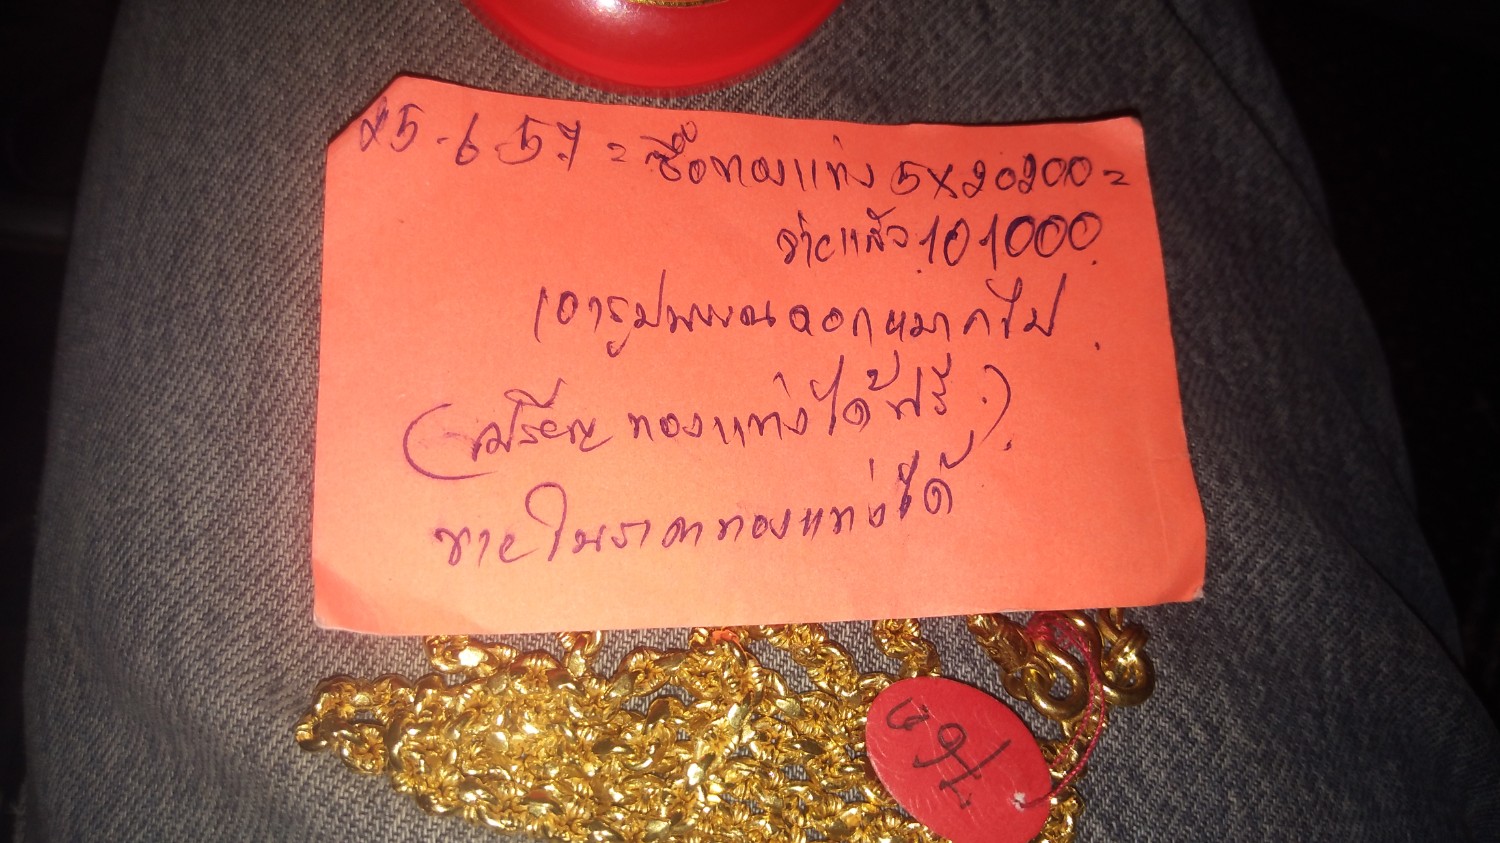 25-6-57 = ซื้อทองแท่ง 5x20200 =
จ่ายแล้ว 101000
เอารูปพรรณดอกหมากไป
(เปลี่ยน ทองแท่งได้ฟรี.)
ขายในราคาทองแท่งได้